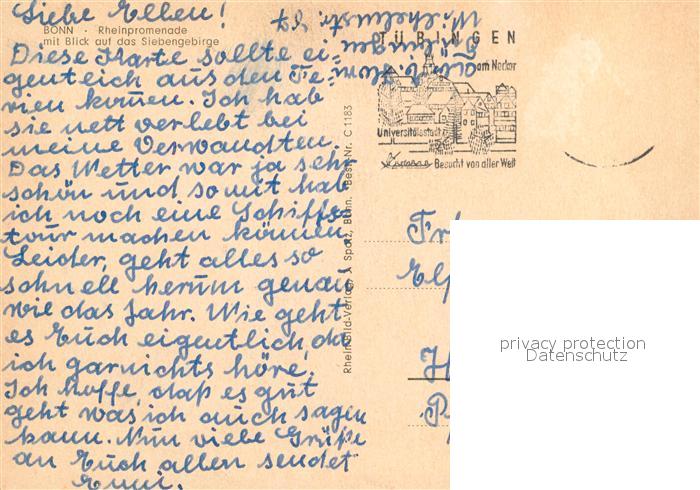 Liebe Ellen!
BONN · Rheinpromenade
mit Blick auf das Siebengebirge
Diese Karte sollte ei-
gentlich aus den Fe-
rien kommen. Ich hab
sie nett verlebt bei
meine Verwandten.
Das Wetter war ja sehr
schön und somit hab
ich noch eine Schiffs-
tour machen können.
Leider, geht alles so
schnell herum genau
wie das Jahr. Wie geht
es Euch eigentlich, da
ich garnichts höre.
Ich hoffe, daß es gut
geht was ich auch sagen
kann. Nun viele Grüße
an Euch allen sendet
Emmi.
Tübingen
Wilhelmstr. 24
Rheinbild-Verlag, X Spatz, Bonn. Best. Nr. C 1183
TÜBINGEN
am Neckar
Universitätsstadt
Besucht von aller Welt
privacy protection
Datenschutz